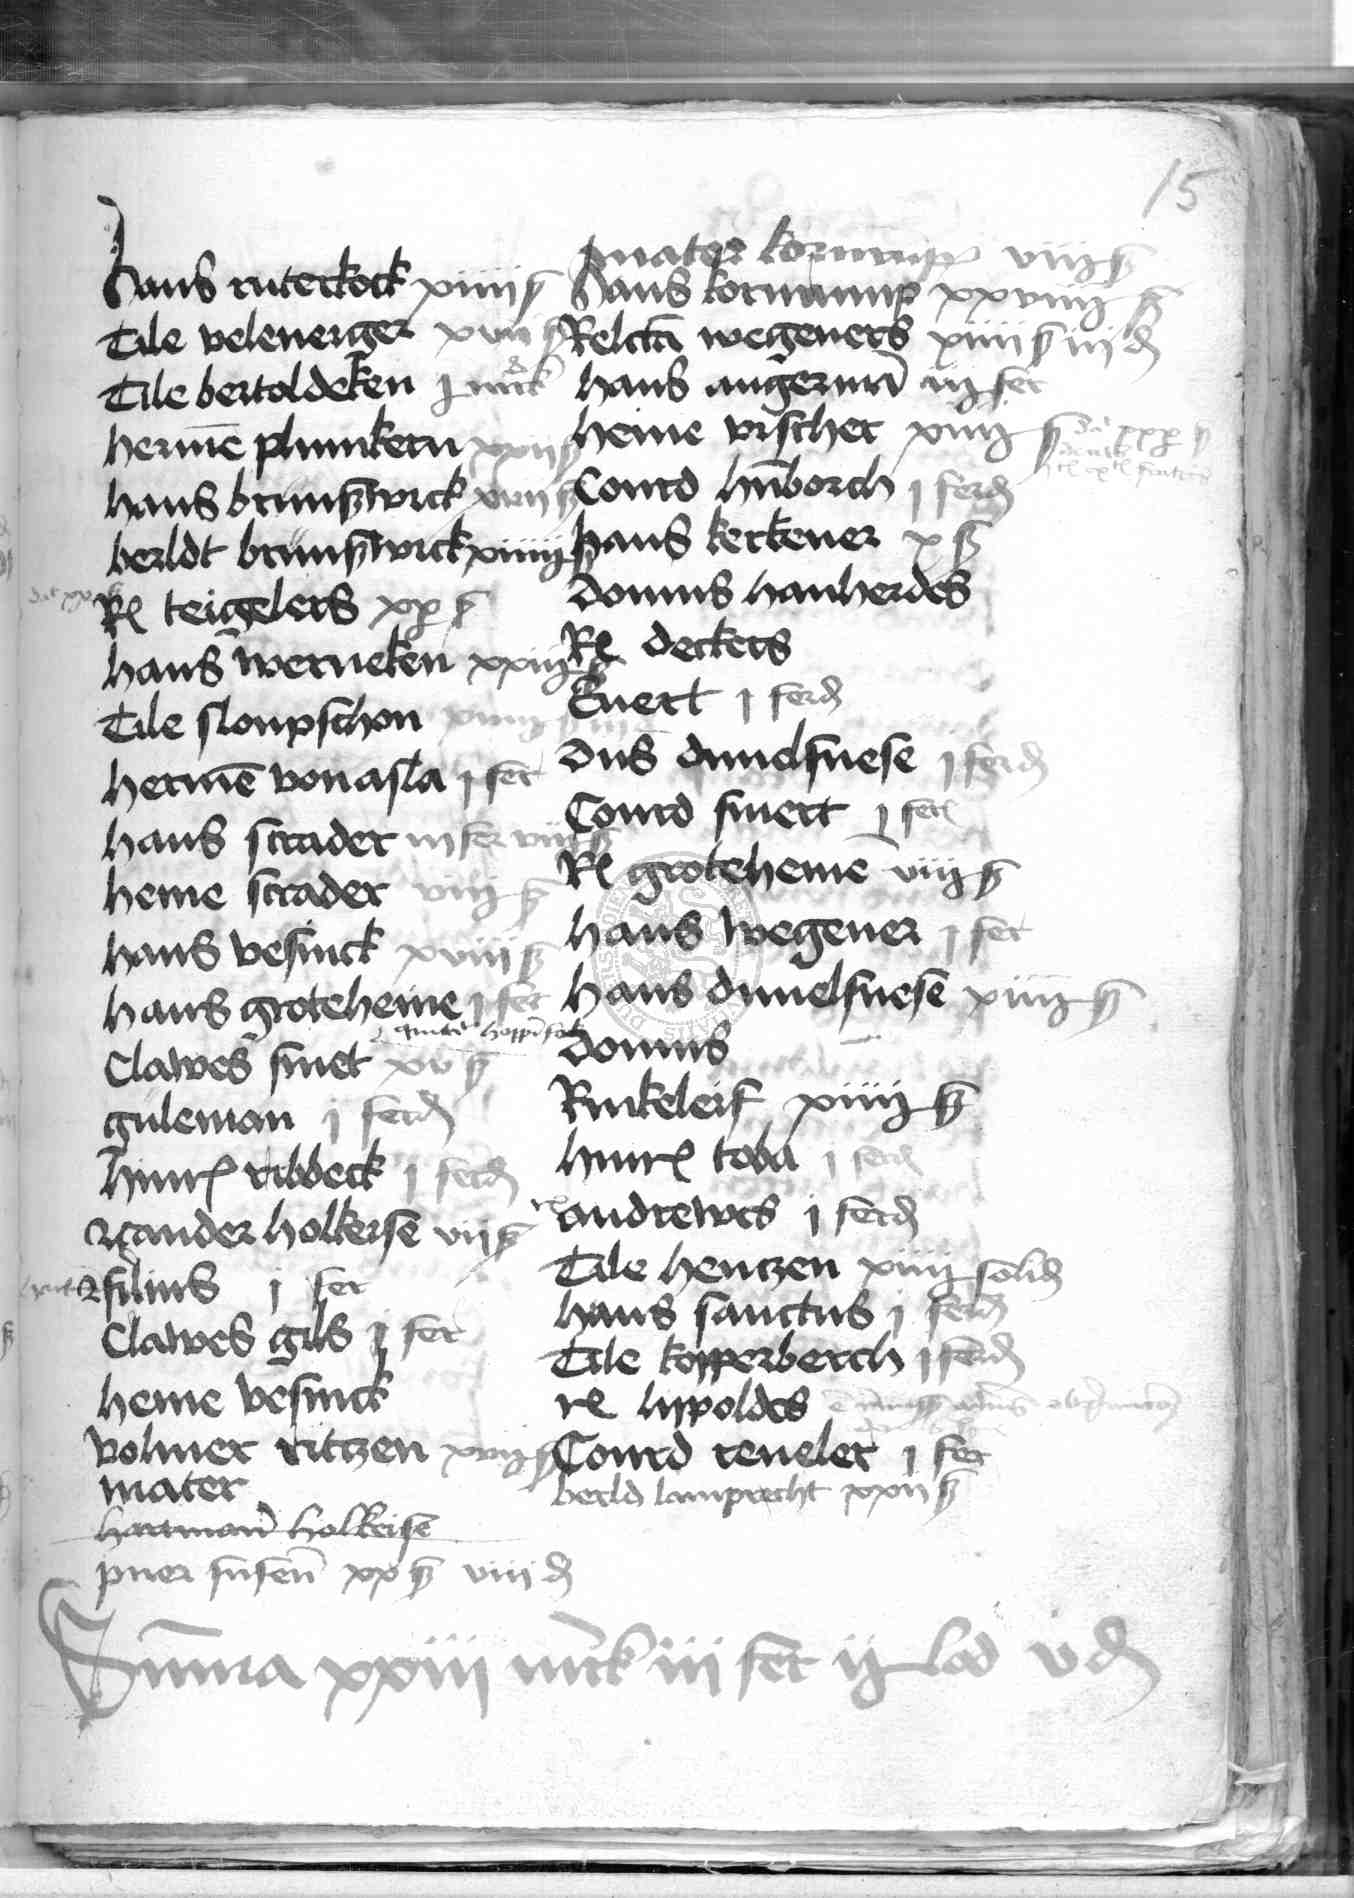 15
Hans ruterkock xiiii ß
Tile velenerger xvii ß
Tile bertoldeken j mrck
hermē plumkern xxii ß
hans brunßwick xvii ß
berldt brunßwick xiiiij ß
Rl teigelers xx ß
hans werneken xxiij ß
Tile sloupschon
hermē von asla j fer
hans scrader iii fer viij ß
heine scrader viij ß
hans vesinck xviiii ß
hans groteheine j fer
Clawes smet xv ß
guleman j ferd
hinr ribbeck j ferd
xander holkerse vij ß
filius j fer
Clawes gils j fer
heine vesinck
volmer ritzen xviij ß
mater
hartman holkerse
puer susen xx ß viiii d
mater kornrump viij ß
Hans kornrump xxviiij ß
Relicta wegeners xiiii ß iii d
hans angerman iij fer
heine vischer xiiij ß
Conrd limborch j ferd
hans kerkener x ß
Domus hanherdes
Rl deckers
Evert j ferd
Dns duuelsuese j ferd
Conrd smert j fer
Rl groteheine viij ß
hans wegener j fer
hans duuelsuese xiiij ß
Domus
Rinkeleif xiiiij ß
hinr toba j ferd
andrewes j ferd
Tile hentzen xiiij solid
hans sanctus j ferd
Tile kopperberch j ferd
rl lippoldes
Conrd reneler j fer
berld lamprecht xxii ß
Summa xxiii mrck iii fer ij lod v d